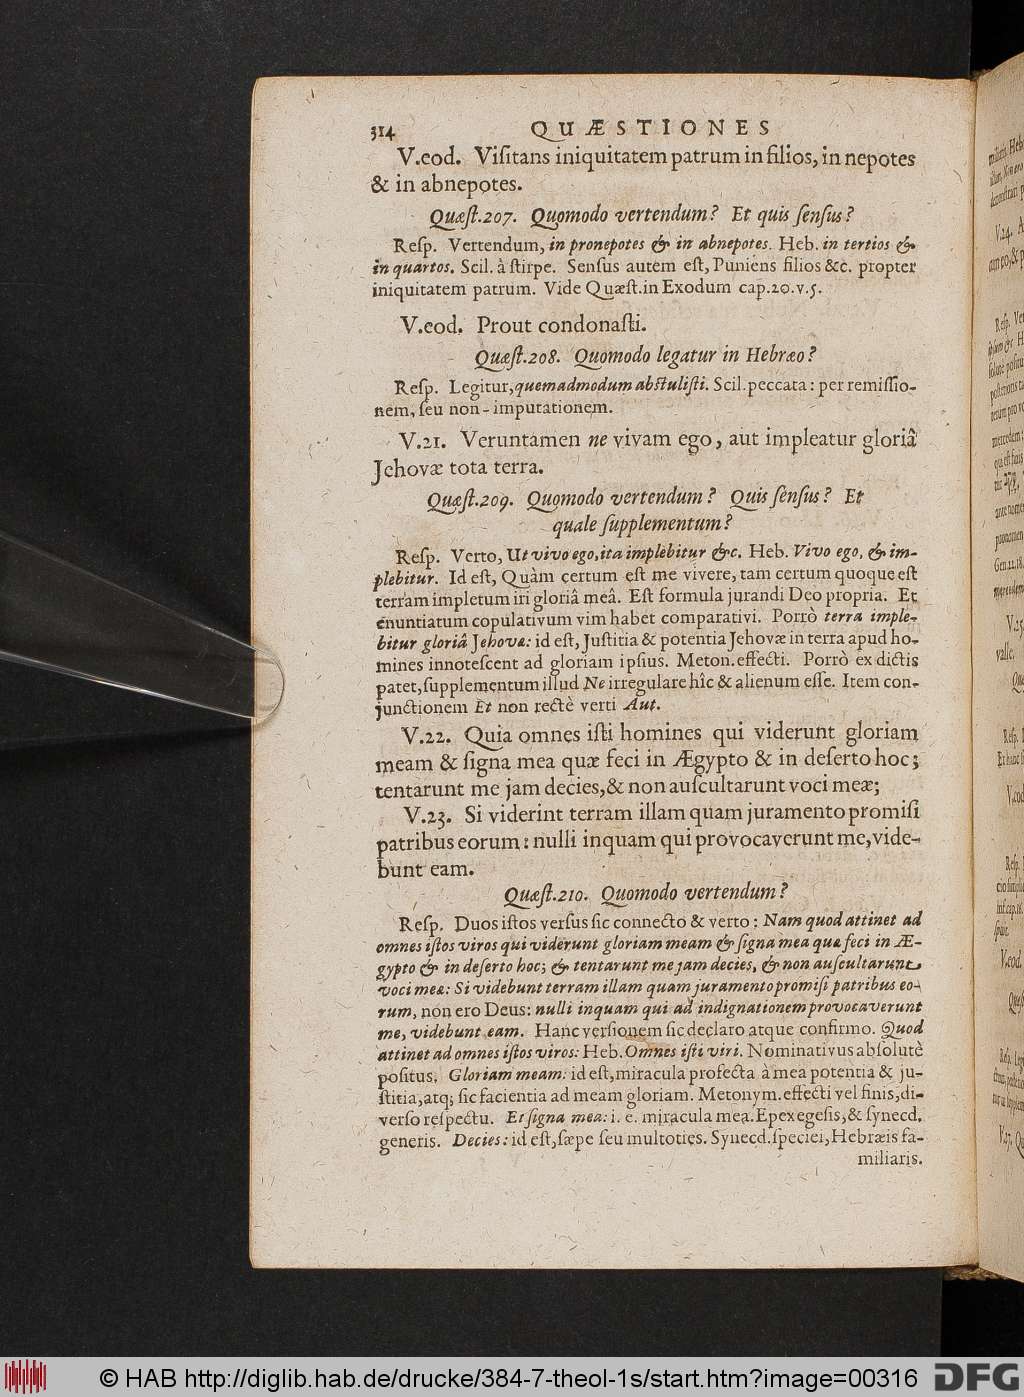 314 QUÆSTIONES
V.eod. Viſitans iniquitatem patrum in filios, in nepotes
& in abnepotes.
Quæſt.207. Quomodo vertendum? Et quis ſenſus?
Reſp. Vertendum, in pronepotes & in abnepotes. Heb. in tertios &
in quartos. Scil. à ſtirpe. Senſus autem eſt, Puniens filios &c. propter
iniquitatem patrum. Vide Quæſt.in Exodum cap.20.v.5.
V.eod. Prout condonaſti.
Quæſt.208. Quomodo legatur in Hebræo?
Reſp. Legitur, quemadmodum abſtuliſti. Scil. peccata: per remiſſio-
nem, ſeu non-imputationem.
V.21. Veruntamen ne vivam ego, aut impleatur gloriâ
Jehovæ tota terra.
Quæſt.209. Quomodo vertendum? Quis ſenſus? Et
quale ſupplementum?
Reſp. Verto, Ut vivo ego, ita implebitur &c. Heb. Vivo ego, & im-
plebitur. Id eſt, Quàm certum eſt me vivere, tam certum quoque eſt
terram impletum iri gloriâ meâ. Eſt formula jurandi Deo propria. Et
enuntiatum copulativum vim habet comparativi. Porrò terra imple-
bitur gloriâ Jehovæ: id eſt, Juſtitia & potentia Jehovæ in terra apud ho-
mines innoteſcent ad gloriam ipſius. Meton.effecti. Porrò ex dictis
patet, ſupplementum illud Ne irregulare hîc & alienum eſſe. Item con-
junctionem Et non rectè verti Aut.
V.22. Quia omnes iſti homines qui viderunt gloriam
meam & ſigna mea quæ feci in Ægypto & in deſerto hoc;
tentarunt me jam decies, & non auſcultarunt voci meæ;
V.23. Si viderint terram illam quam juramento promiſi
patribus eorum: nulli inquam qui provocaverunt me, vide-
bunt eam.
Quæſt.210. Quomodo vertendum?
Reſp. Duos iſtos verſus ſic connecto & verto: Nam quod attinet ad
omnes iſtos viros qui viderunt gloriam meam & ſigna mea quæ feci in Æ-
gypto & in deſerto hoc; & tentarunt me jam decies, & non auſcultarunt
voci meæ: Si videbunt terram illam quam juramento promiſi patribus eo-
rum, non ero Deus: nulli inquam qui ad indignationem provocaverunt
me, videbunt eam. Hanc verſionem ſic declaro atque confirmo. Quod
attinet ad omnes iſtos viros: Heb. Omnes iſti viri. Nominativus abſolutè
poſitus. Gloriam meam: id eſt, miracula profecta à mea potentia & ju-
ſtitia, atq; ſic facientia ad meam gloriam. Metonym.effecti vel finis, di-
verſo reſpectu. Et ſigna mea: i. e. miracula mea. Epexegeſis, & ſynecd.
generis. Decies: id eſt, ſæpe ſeu multoties. Synecd. ſpeciei, Hebræis fa-
miliaris.
© HAB http://diglib.hab.de/drucke/384-7-theol-1s/start.htm?image=00316
DFG